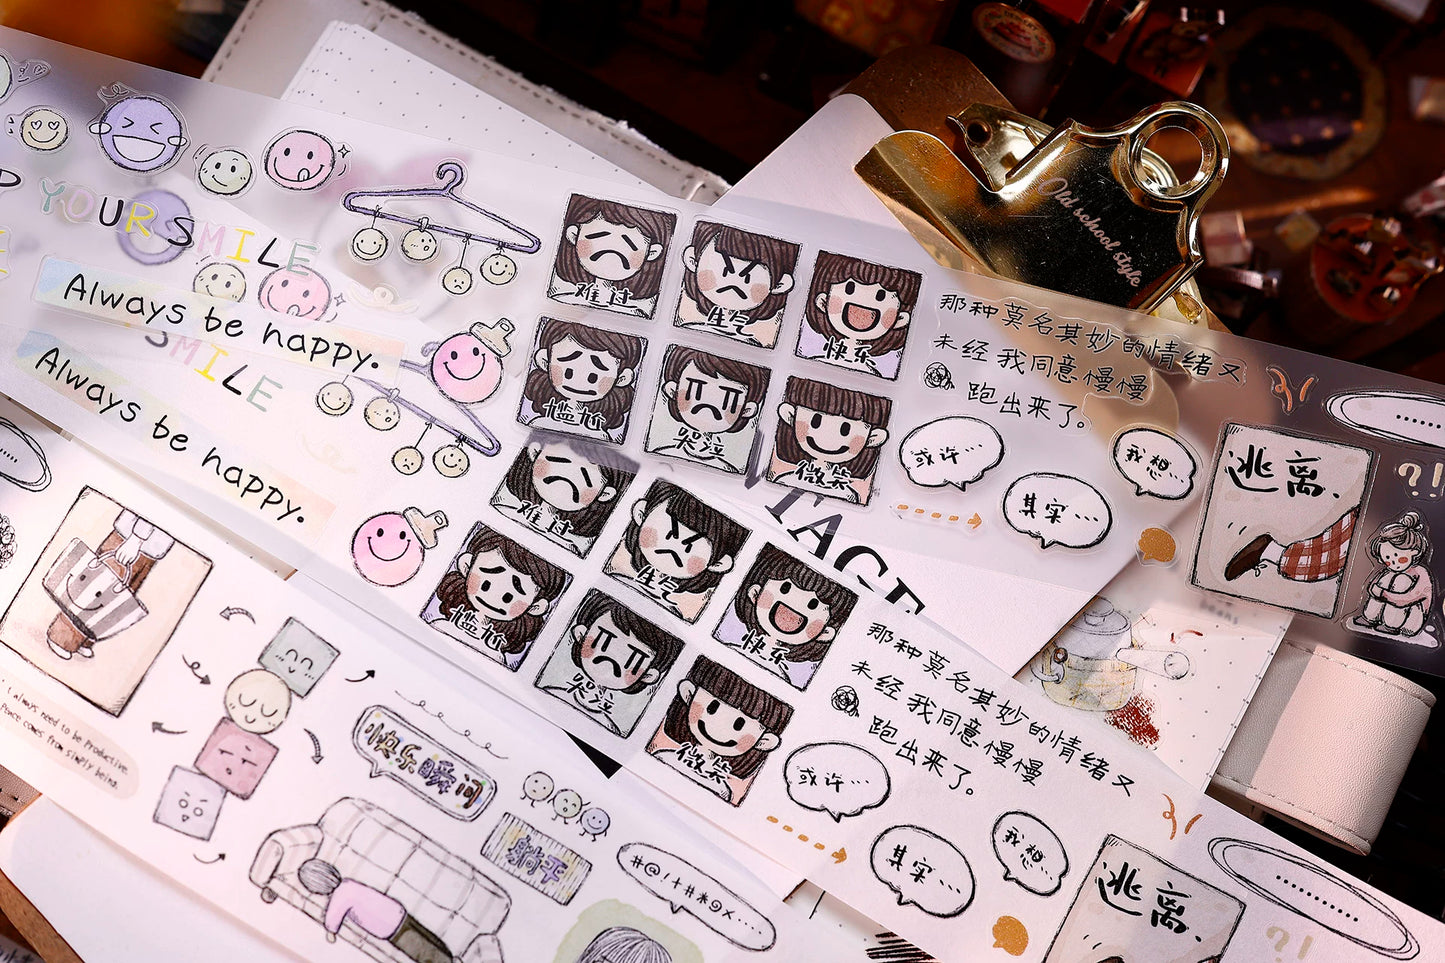 YOUR SMILE
Always be happy.
SMILE
Always be happy.
难过
生气
快乐
尴尬
哭泣
微笑
难过
生气
快乐
尴尬
哭泣
微笑
Old school style
那种莫名其妙的情绪又
未经我同意慢慢
跑出来了。
或许…
其实…
我想…
逃离.
?!
那种莫名其妙的情绪又
未经我同意慢慢
跑出来了。
或许…
其实…
我想…
逃离.
?!
I always need to be productive.
Peace comes from simply being.
快乐瞬间
躺平
#@!+#*@x...